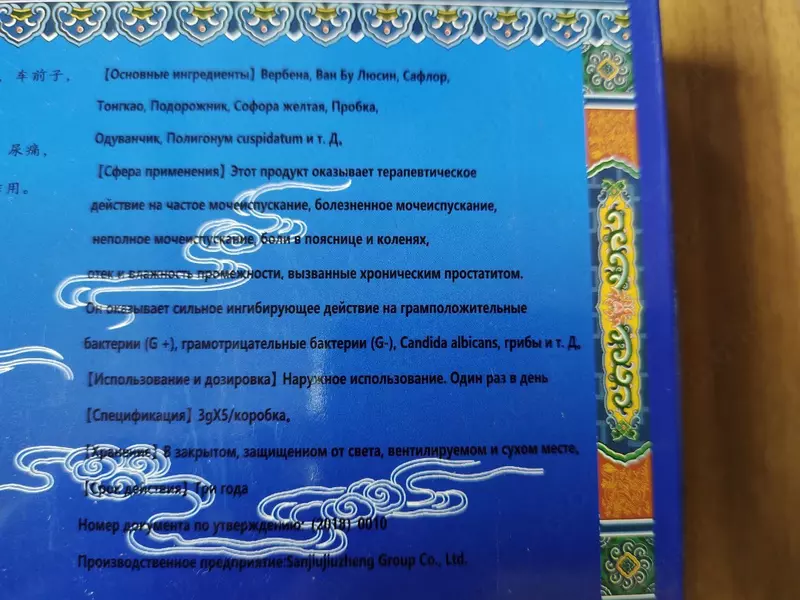 车前子，
尿痛，
用。
【Основные ингредиенты】Вербена, Ван Бу Люсин, Сафлор,
Тонгкао, Подорожник, Софора желтая, Пробка,
Одуванчик, Полигонум cuspidatum и т. Д。
【Сфера применения】Этот продукт оказывает терапевтическое
действие на частое мочеиспускание, болезненное мочеиспускание,
неполное мочеиспускание, боли в пояснице и коленях,
отек и влажность промежности, вызванные хроническим простатитом.
Он оказывает сильное ингибирующее действие на грамположительные
бактерии (G +), грамотрицательные бактерии (G-), Candida albicans, грибы и т. Д。
【Использование и дозировка】Наружное использование. Один раз в день
【Спецификация】3gX5/коробка。
【Хранение】В закрытом, защищенном от света, вентилируемом и сухом месте。
【Срок действия】Три года
Номер документа по утверждению: (2018) 0010
Производственное предприятие:Sanjiujiuzheng Group Co., Ltd.